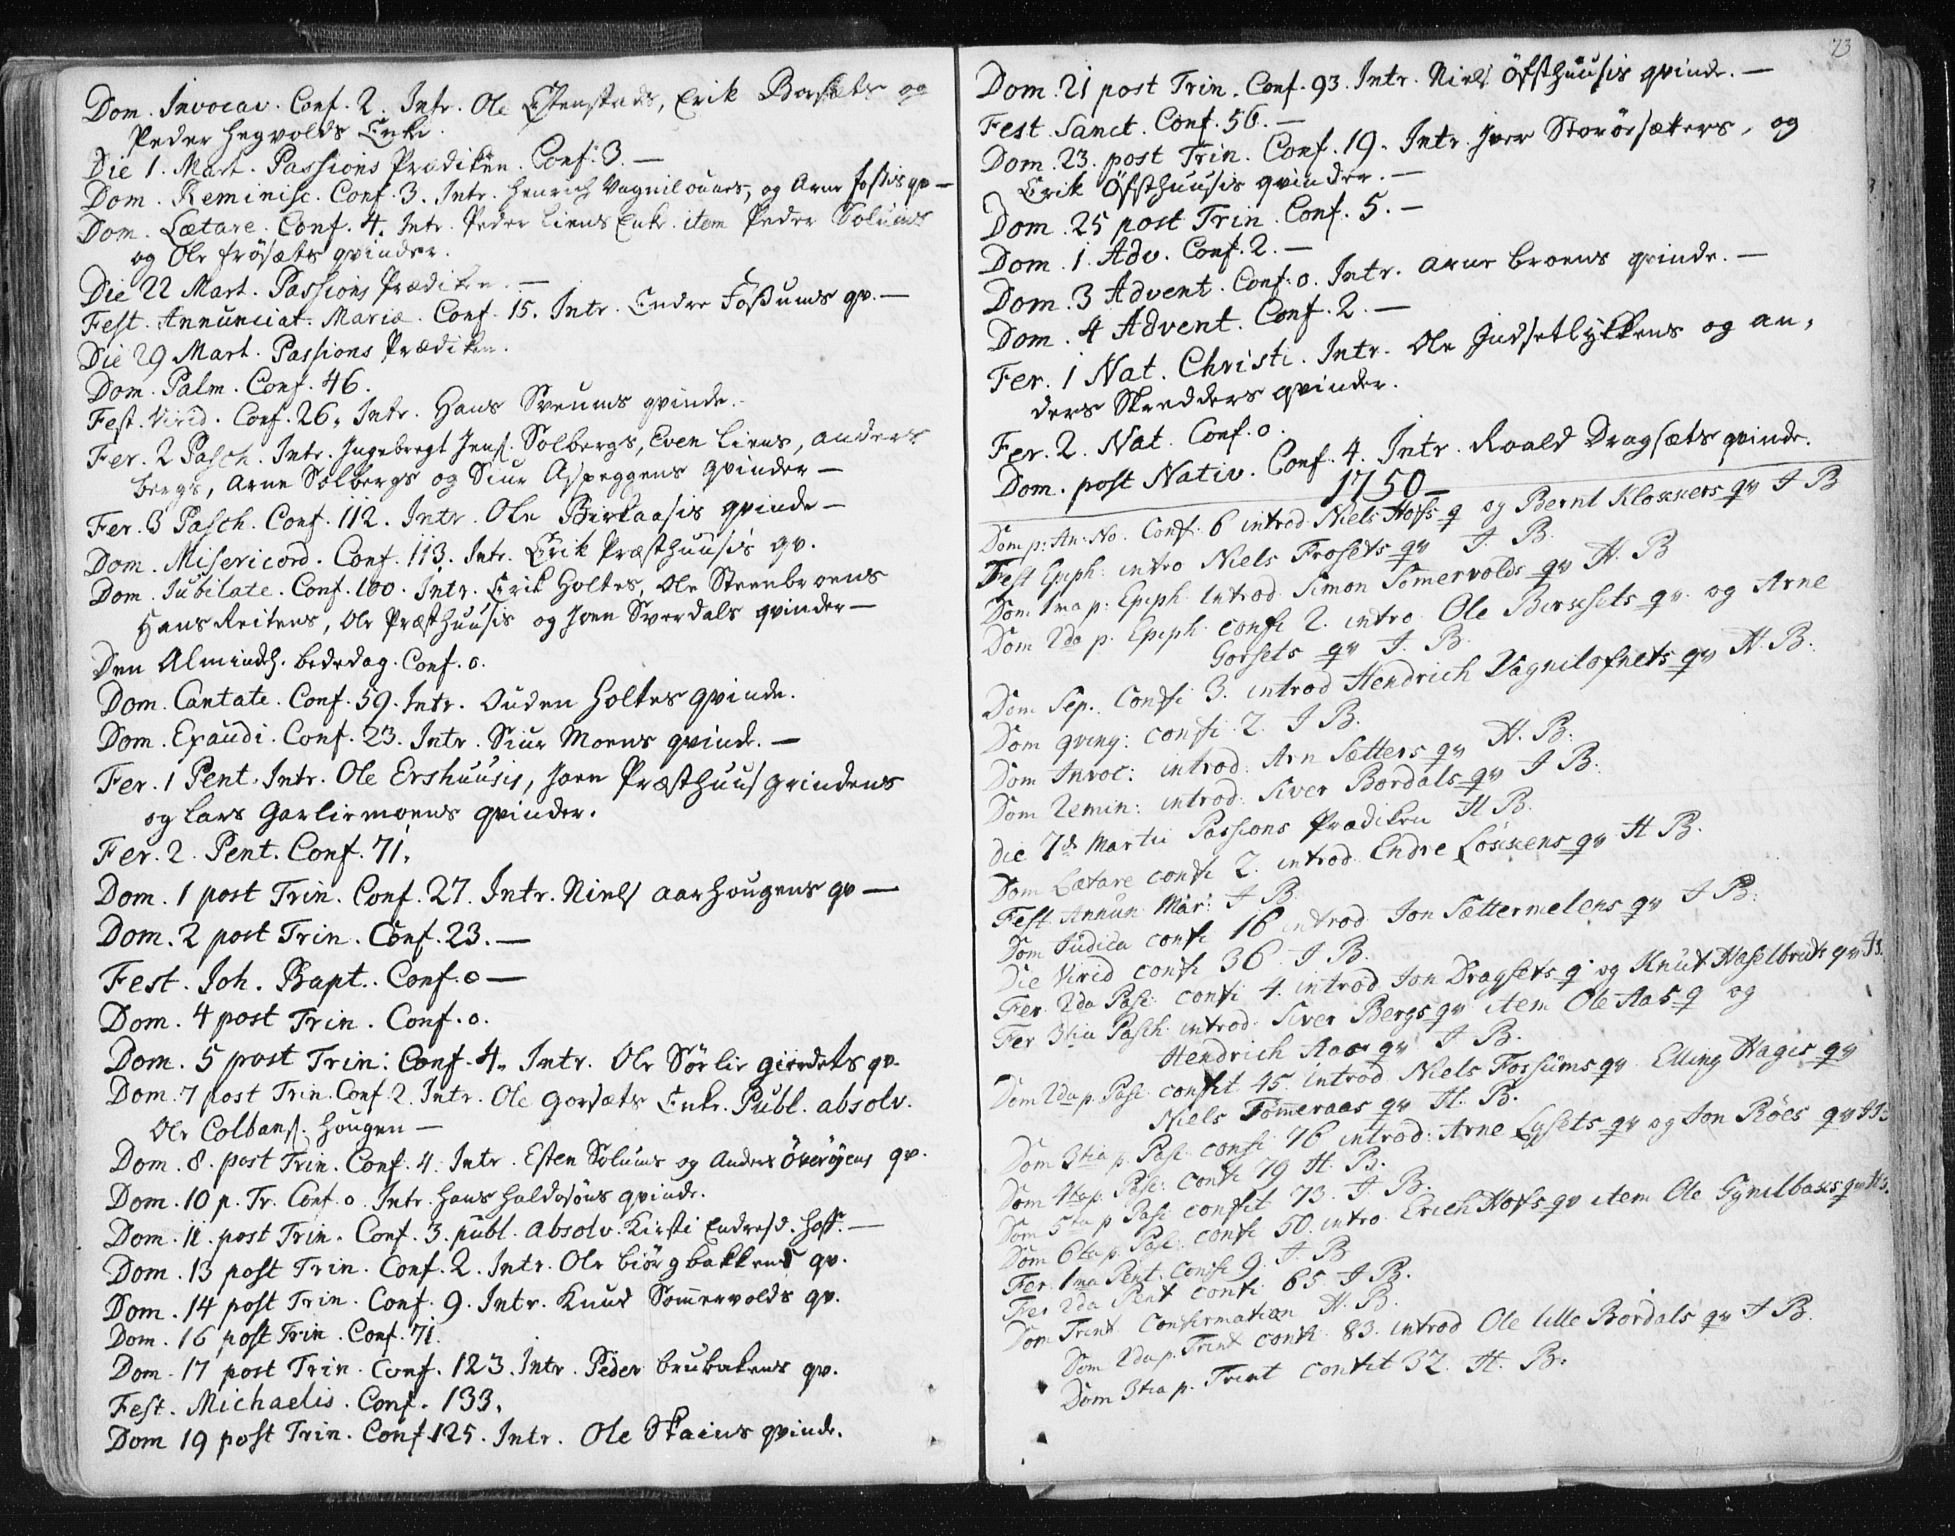 Dom. Invocav. Conf. 2. Intr. Ole Estenstads, Erik Borsets og
Peder Hegvolds Enke.
Die 1. Mart. Passions Prædiken. Conf. 3. —
Dom. Reminisc. Conf. 3. Intr. Henrich Vognilounes, og Arne Fossis qv —
Dom. Lætare. Conf. 4. Intr. Peder Liens Enke. item Peder Solums
og Ole Frösæts qvinder.
Die 22 Mart. Passions Prædiken. —
Fest. Annunciat. Mariæ. Conf. 15. Intr. Endre Fossums qv. —
Die 29 Mart. Passions Prædiken.
Dom. Palm. Conf. 46.
Fest. Virid. Conf. 26. Intr. Hans Sveums qvinde.
Fer. 2 Pasch. Intr. Ingebregt Jens. Solbergs, Even Liens, Anders
bergs, Arne Solbergs og Siur Aspeggens qvinder —
Fer. 3 Pasch. Conf. 112. Intr. Ole Birkaasis qvinde —
Dom. Misericord. Conf. 113. Intr. Erik Præsthuusis qv.
Dom. Jubilate. Conf. 100. Intr. Erik Holtes, Ole Steenbroens
Hans Reitens, Ole Præsthuusis og Joen Sverdals qvinder —
Den Almindel. bededag. Conf. 0.
Dom. Cantate. Conf. 59. Intr. Ouden Holtes qvinde.
Dom. Exaudi. Conf. 23. Intr. Siur Moens qvinde. —
Fer. 1 Pent. Intr. Ole Ershuusis, Joen Præsthuusgrindens
og Lars Garliemoens qvinder.
Fer. 2. Pent. Conf. 71.
Dom. 1 post Trin. Conf. 27. Intr. Niels Aarhougens qv —
Dom. 2 post Trin. Conf. 23. —
Fest. Joh. Bapt. Conf. 0 —
Dom. 4 post Trin. Conf. 0.
Dom. 5 post Trin: Conf. 4. Intr. Ole Sörlie gierdets qv.
Dom. 7 post Trin. Conf. 2. Intr. Ole Gorsæts Enke. Publ. absolv.
Ole Colbans. Hougen —
Dom. 8. post Trin. Conf. 4. Intr. Esten Solums og Anders Överöyens qv.
Dom. 10 p. Tr. Conf. 0. Intr. Hans Haldosöns qvinde.
Dom. 11. post Trin. Conf. 3. publ. absolv. Kirsti Endresd. Hoff. —
Dom. 13 post Trin. Conf. 2. Intr. Ole biörgbakkens qv.
Dom. 14 post Trin. Conf. 9. Intr. Knud Somervolds qv.
Dom. 16 post Trin. Conf. 71.
Dom. 17 post Trin. Conf. 123. Intr. Peder brubakens qv.
Fest. Michaelis. Conf. 133.
Dom 19 post Trin. Conf. 125. Intr. Ole Skains qvinde.
73
Dom. 21 post Trin. Conf. 93. Intr. Niels Öfsthuusis qvinde. —
Fest. Sanct. Conf. 56. —
Dom. 23. post Trin. Conf. 19. Intr. Iver Storösæters, og
Erik Öfsthuusis qvinder. —
Dom. 25 post Trin. Conf. 5. —
Dom. 1. Adv. Conf. 2. —
Dom. 3 Advent. Conf. 0. Intr. Arne broens qvinde. —
Dom. 4 Advent. Conf. 2. —
Fer. 1 Nat. Christi. Intr. Ole Indsetlykkens og An-
ders Skredders qvinder.
Fer. 2. Nat. Conf. 0.
Dom. post Nativ. Conf. 4. Intr. Roald Dragsæts qvinde.
1750 —
Dom p: An: No. Conf. 6 introd Niels Hofs q og Bernt Klokkers qv J B
Fest Epiph: intro Niels Frosets qv J. B.
Dom 1ma p: Epiph. Introd. Simon Somervolds qv H. B
Dom 2da p. Epiph. confi 2. intro Ole Borsets qv. og Arne
Gorsets qv J. B.
Dom Sep. Confi 3. introd Hendrich Vagnilofnets qv H. B.
Dom qving: confi 2. J B.
Dom Invoc: introd: Arn Sætters qv H. B.
Dom Remin: introd: Siver Bordals qv J B.
Die 7de Martii Passions Prædiken H B.
Dom Lætare confi 2. introd. Endre Løkkens qv H B.
Fest Annun Mar: J B.
Dom Judica confi 16 introd Jon Sættermelens qv J B:
Die Virid confi 36 J B.
Fer 2da Pasc: confi 4. introd Jon Dragsets q og Knut Haselbrets qv J B.
Fer 3tia Pasch: introd: Siver Bergs qv item Ole Aas q og
Hendrich Aas qv J B.
Dom 2da p. Pasc confit 45. introd Niels Fossums qv Elling Hages qv
Niels Tømmeraas qv H. B.
Dom 3tia p. Pasc. confi 76 introd: Arne Lysets qv og Jon Røes qv J B
Dom 4ta p. Pasc: confi 79 H. B.
Dom 5ta p Pasc confit 73. J. B.
Dom 6ta p. Pasc: confi 50. intro Erich Hofs qv item Ole Gynilbakks qv H B.
Fer. 1ma Pent. confi 9. J B
Fer 2da Pent confi 65 J B.
Dom Trinit Confirmation H. B.
Dom 2da p. Trinit confi. 83. introd Ole lille Bordals qv J B.
Dom 3tia p. Trinit confit 32. H. B.